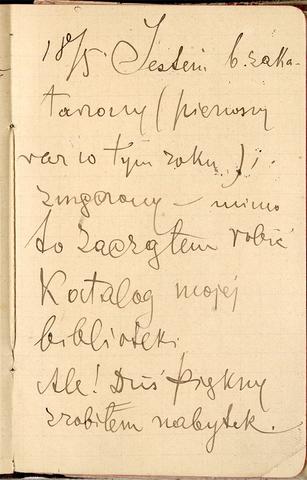 18/5 Jestem b. zaka-
tarzony (pierwszy
raz w tym roku) i
zmęczony – mimo
to zacząłem robić
Katalog mojej
biblioteki.
Ale! Dziś piękny
zrobiłem nabytek.